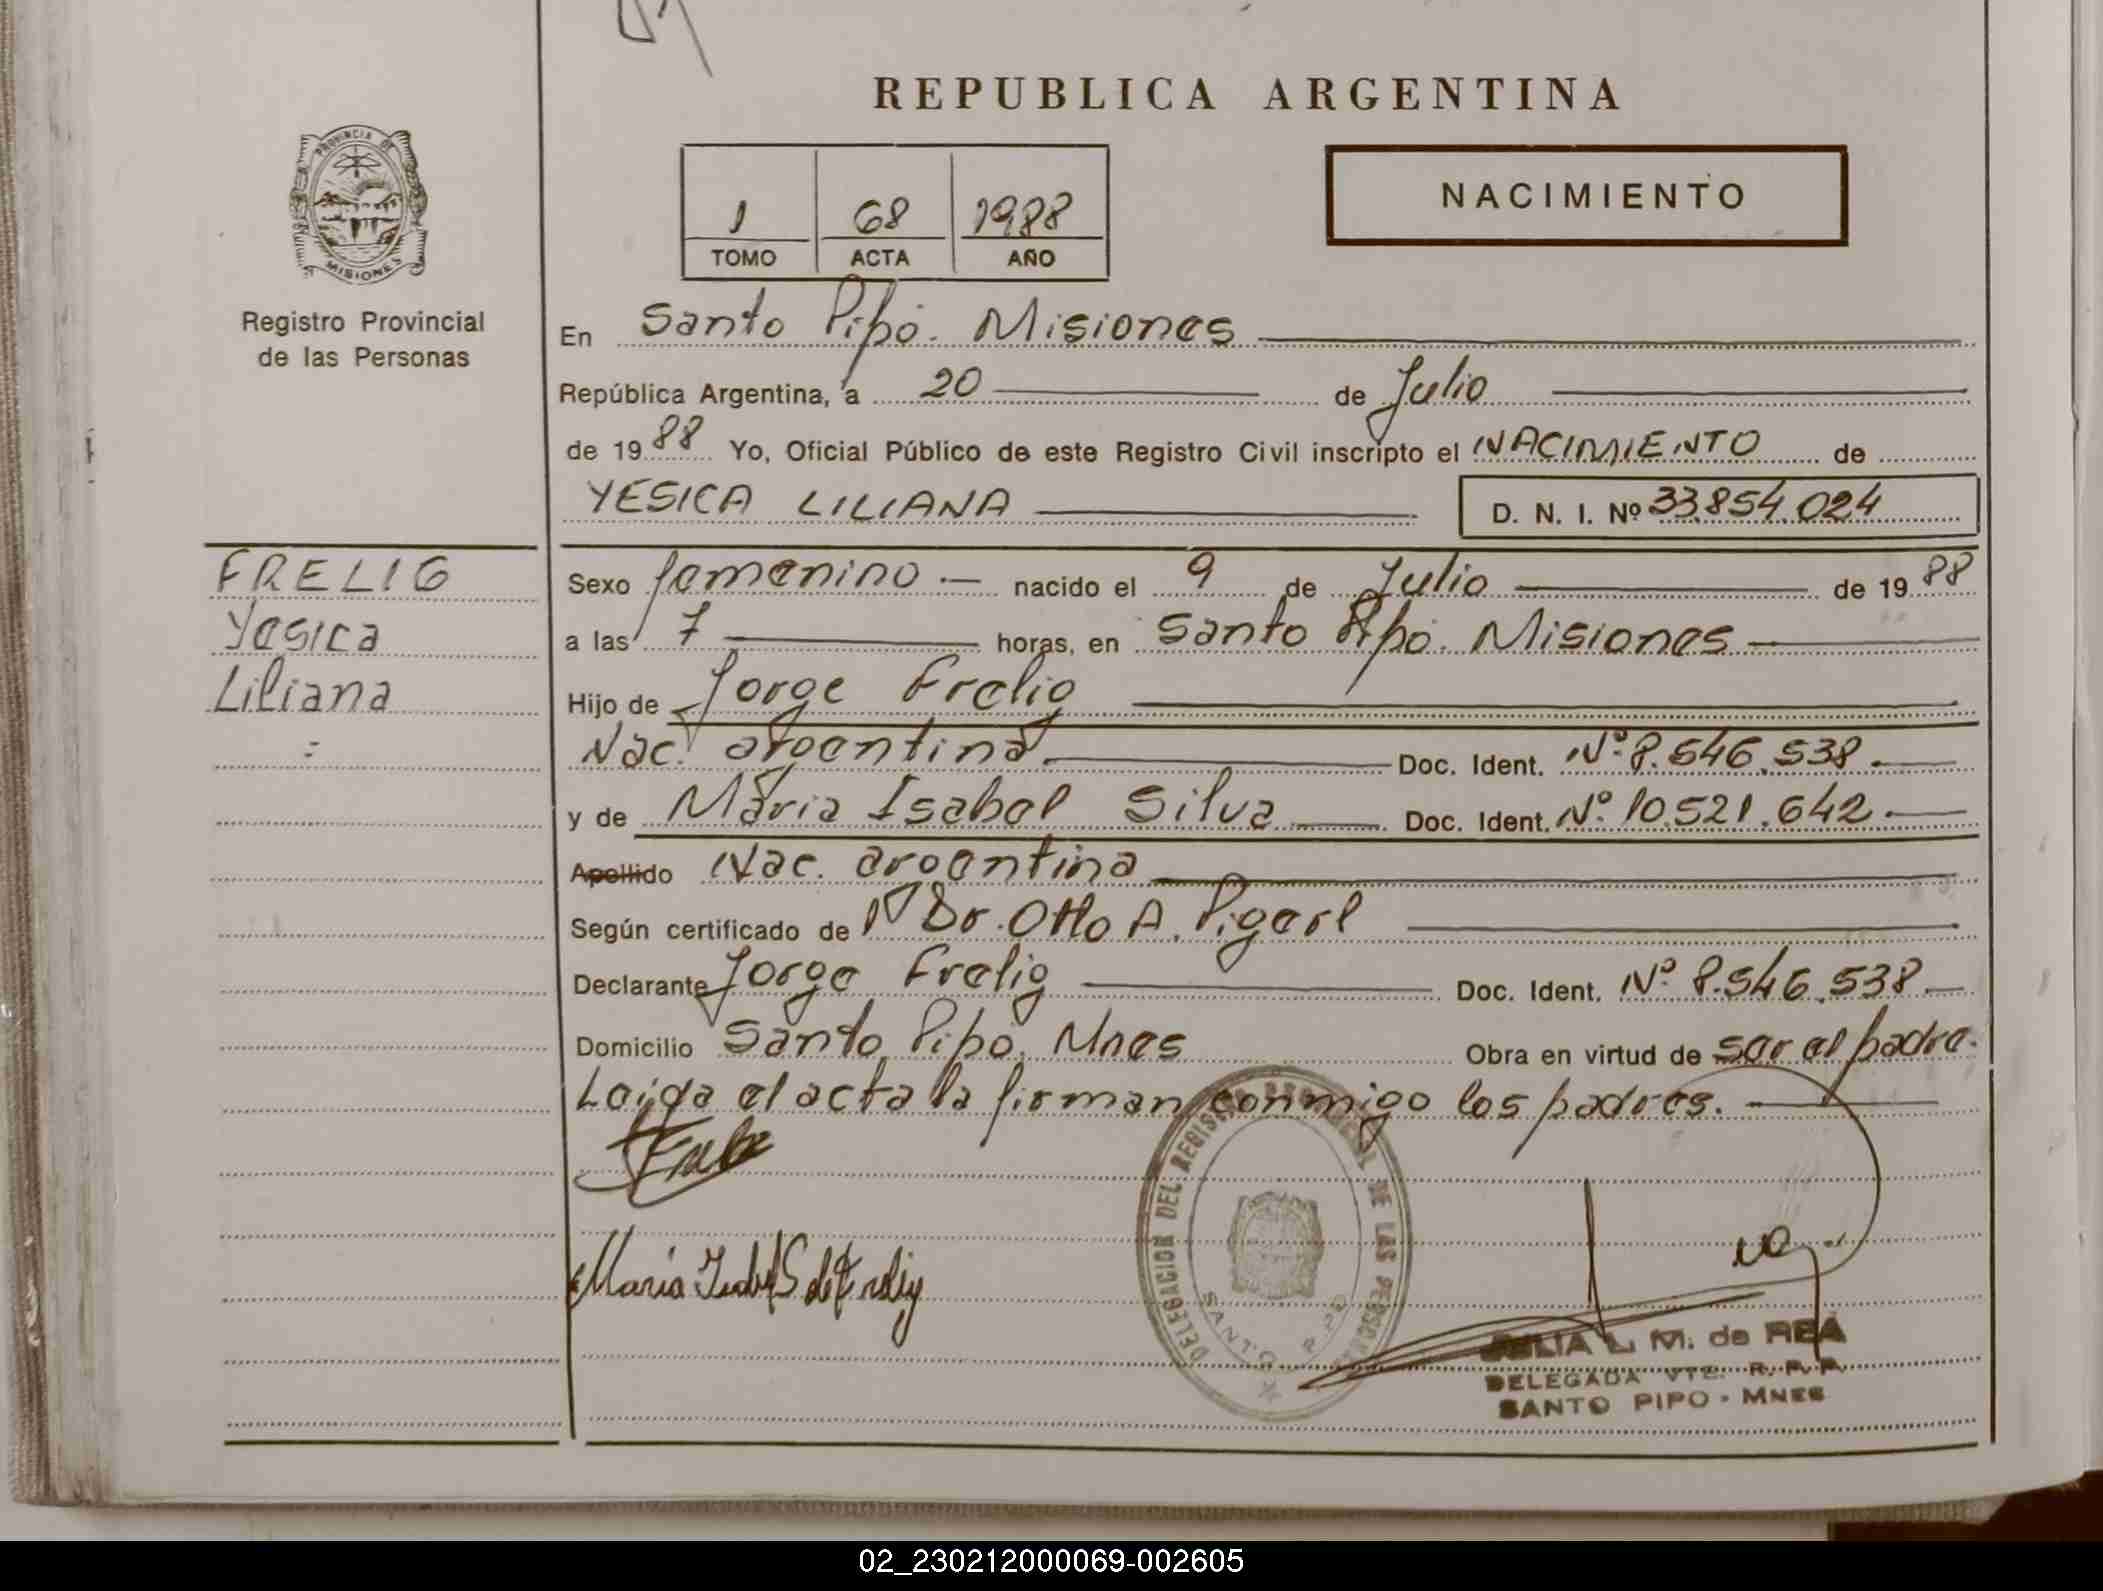 REPUBLICA ARGENTINA
PROVINCIA DE
MISIONES
Registro Provincial
de las Personas
1 68 1988
TOMO ACTA AÑO
NACIMIENTO
En Santo Pipó. Misiones
República Argentina, a 20 de Julio
de 1988 Yo, Oficial Público de este Registro Civil inscripto el NACIMIENTO de
YESICA LILIANA D. N. I. Nº 33.854.024
FRELIG
Yesica
Liliana
Sexo femenino nacido el 9 de Julio de 1988
a las 7 horas, en Santo Pipó. Misiones
Hijo de Jorge Frelig
Nac. argentina Doc. Ident. Nº 8.546.538.
y de Maria Isabel Silva Doc. Ident. Nº 10.521.642
Apellido Nac. argentina
Según certificado de Dr. Otto A. Pigerl
Declarante Jorge Frelig Doc. Ident. Nº 8.546.538
Domicilio Santo Pipó. Mnes Obra en virtud de ser el padre.
Leída el acta la firman conmigo los padres.
DELEGACION DEL REGISTRO PROVINCIAL DE LAS PERSONAS
SANTO PIPO
Maria Isabel S de Frelig
JULIA L. M. de REA
DELEGADA VTE. R. P. P.
SANTO PIPO - MNES
02_230212000069-002605